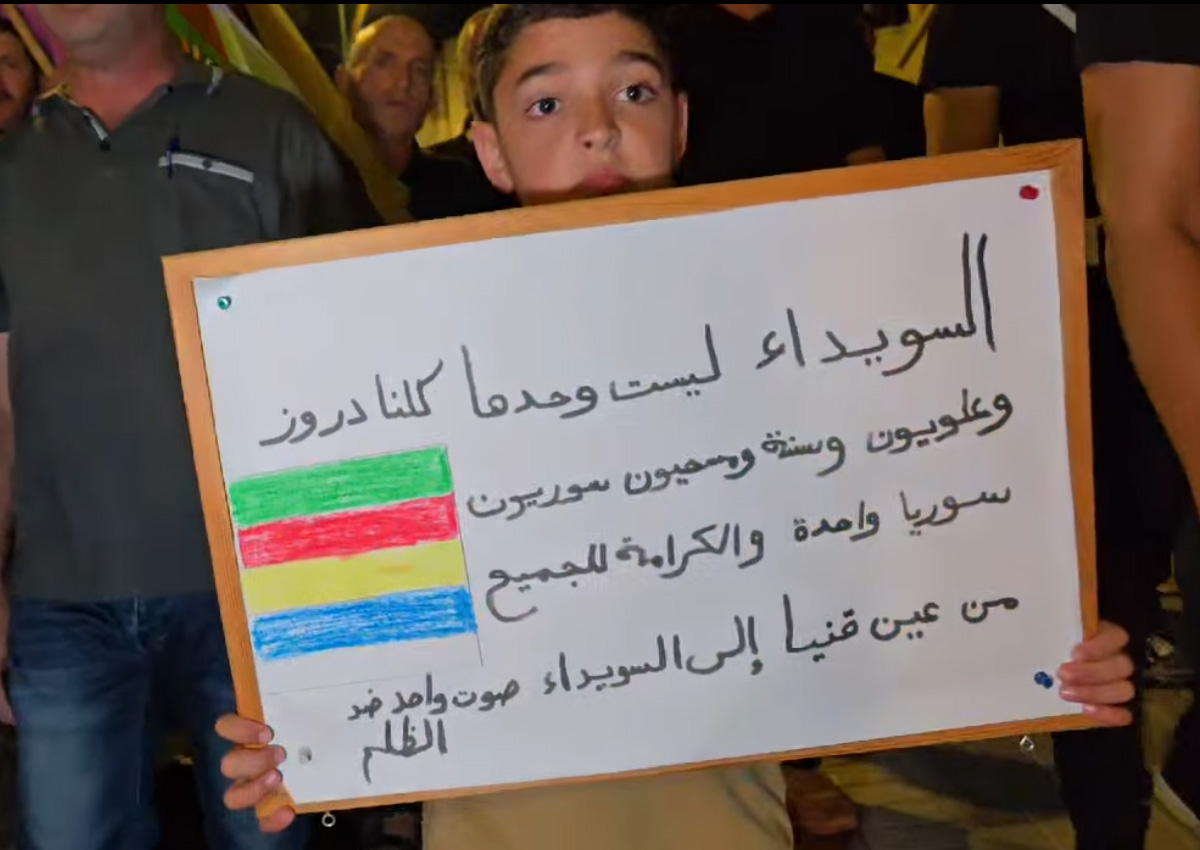 السويداء ليست وحدها كلنا دروز
وعلويون وسنة ومسحيون سوريون
سوريا واحدة والكرامة للجميع
من عين قنيا إلى السويداء صوت واحد ضد
الظلم